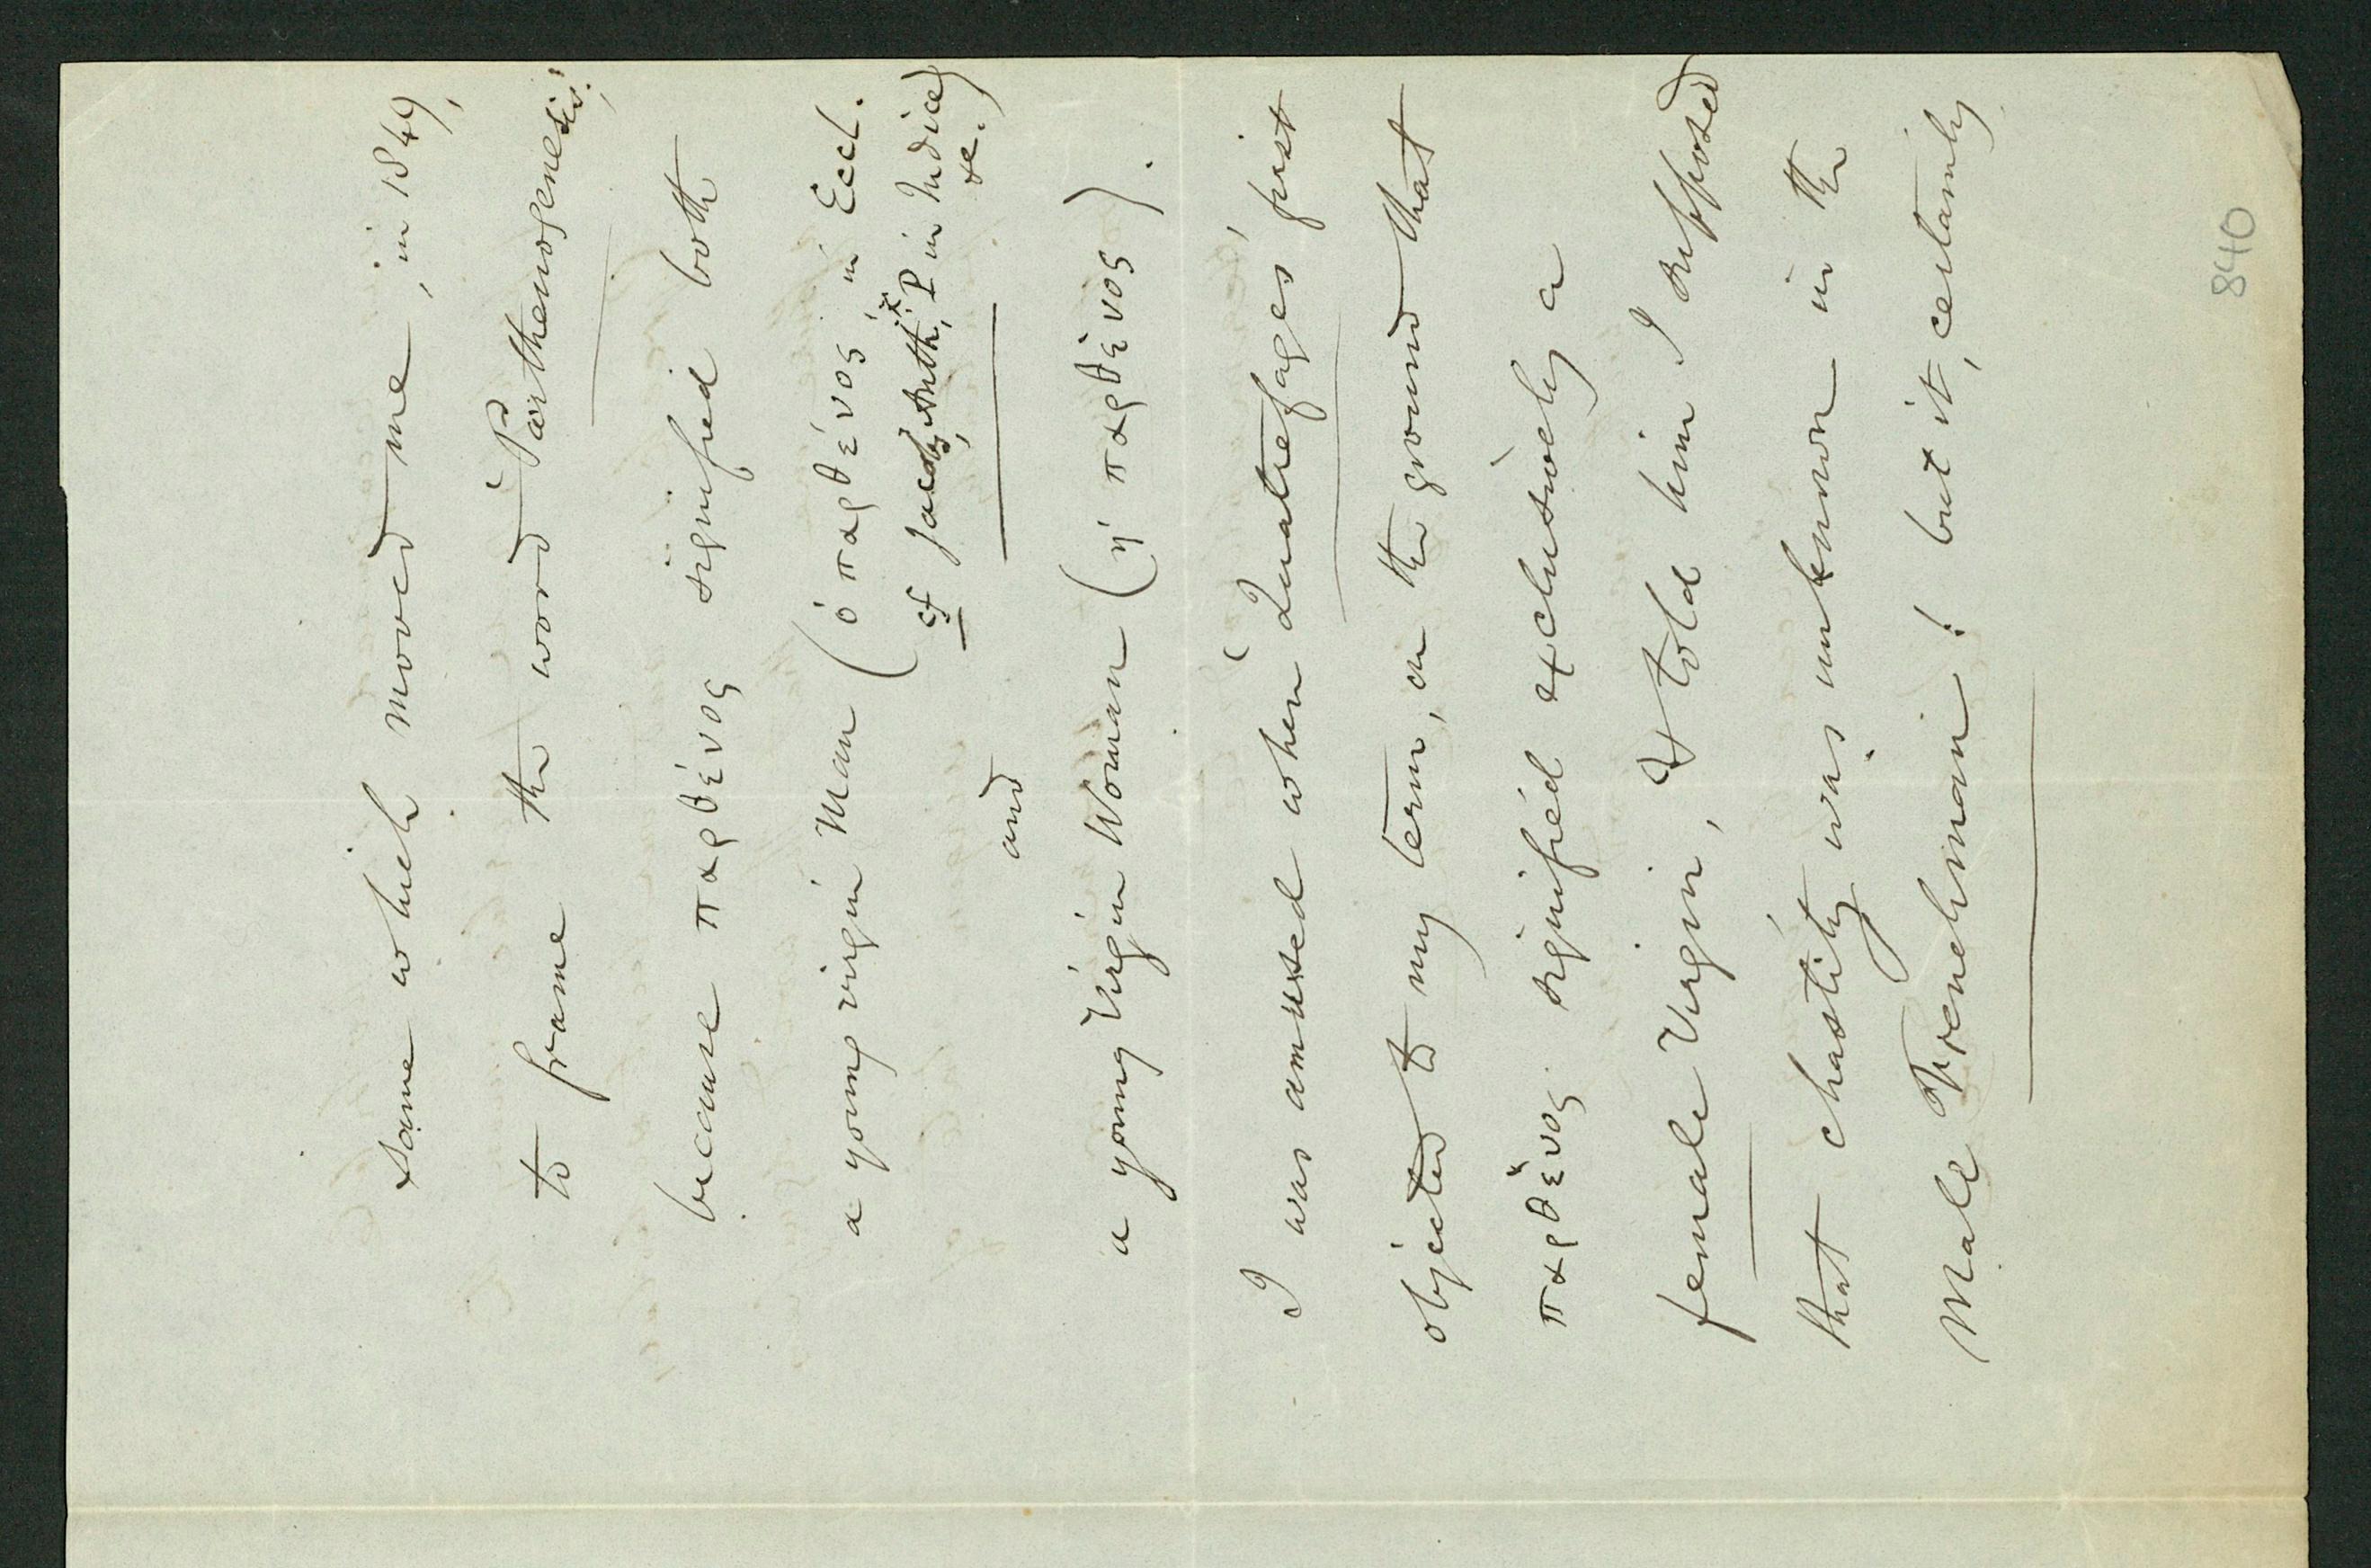 same which moved me, in 1849,
to frame the word 'Parthenogenesis;'
because παρθένος signified both
a young virgin Man (ὁ παρθένος, in Eccl.
cf Jacobs, Anth. P in Indice)
&c.
and
a young Virgin Woman (ἡ παρθένος).
I was amused when 'Quatrefages' first
objected to my term, on the ground that
παρθένος signified exclusively a
female Virgin, & told him I supposed
that chastity was unknown in the
Male Frenchman! but it, certainly
840